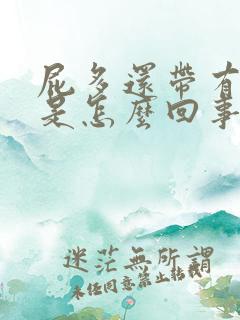 屁多還帶有
是怎麼回事
迷茫無所謂
未任同意禁止轉載